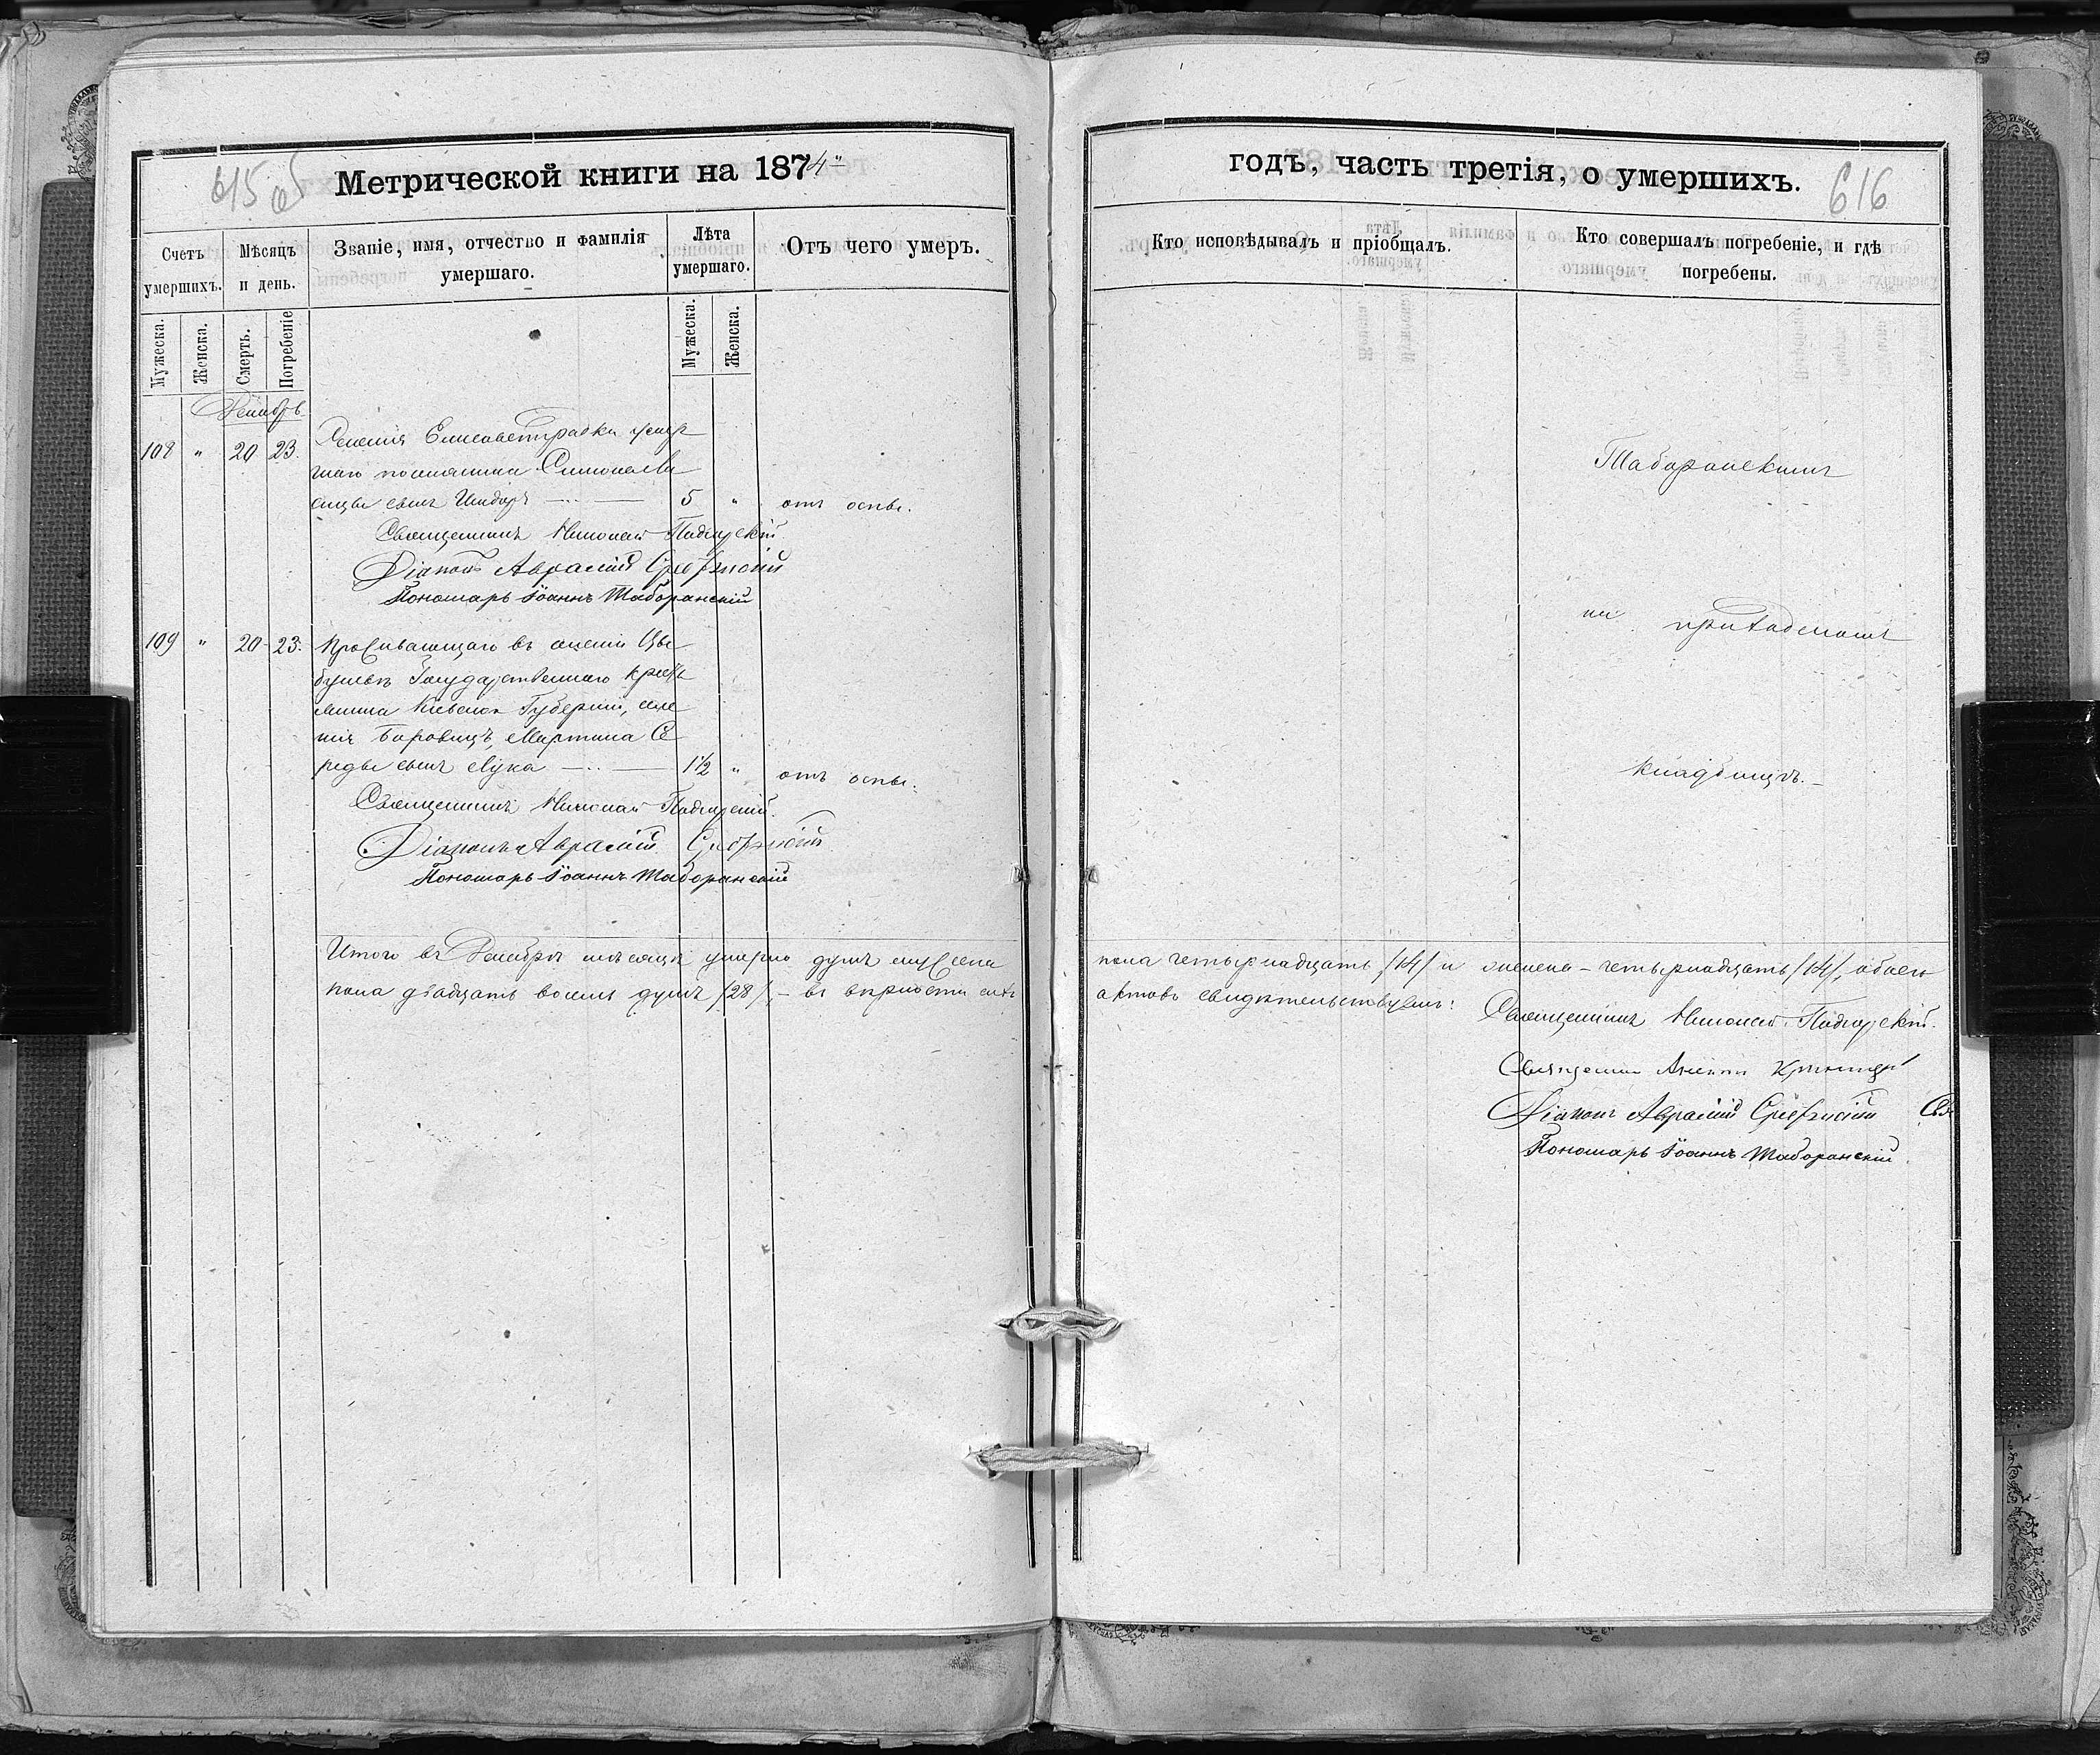 615 об
Метрической книги на 1874
Счетъ умершихъ.
Мѣсяцъ и день.
Званіе, имя, отчество и фамилія умершаго.
Лѣта умершаго.
Отъ чего умеръ.
Мужеска.
Женска.
Смерть.
Погребеніе
Мужеска.
Женска.
Декабрь
108 " 20 23. Селенія Елисаветградки умер
шаго поселянина
сынъ 5 " отъ оспы.
Священникъ Николай Подгурскій.
Діаконъ Аврамій
Пономарь Іоаннъ Таборанскій
109 " 20 23. Проживающаго въ селеніи Цы
булевѣ Государственнаго крестья
нина Кіевской Губерніи, селе
нія Боровицъ, Мартина Се
реды сынъ Лука 1½ " отъ оспы.
Священникъ Николай Подгурскій.
Діаконъ Аврамій
Пономарь Іоаннъ Таборанскій
Итого въ Декабрѣ мѣсяцѣ умерло душъ мужеска
пола двадцать восемь душъ /28/, – въ вѣрности сихъ
годъ, часть третія, о умершихъ.
616
Кто исповѣдывалъ и пріобщалъ.
Кто совершалъ погребеніе, и гдѣ погребены.
Таборанскимъ
на приходскомъ
кладбищѣ.
пола четырнадцать /14/ и женска – четырнадцать /14/, обоего
актовъ свидѣтельствуемъ:
Священникъ Николай Подгурскій.
Священникъ
Діаконъ Аврамій
Пономарь Іоаннъ Таборанскій.